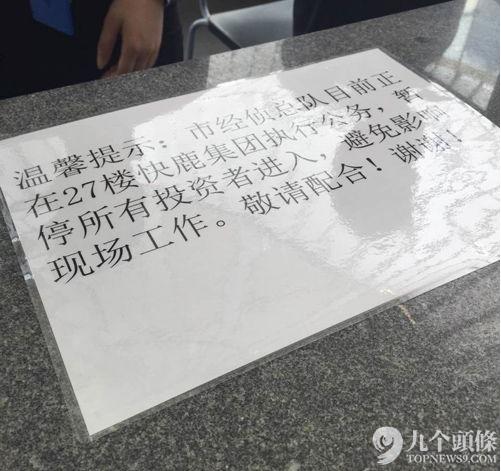 温馨提示：市经侦总队目前正
在27楼快鹿集团执行公务，暂
停所有投资者进入，避免影响
现场工作。敬请配合！谢谢！
九个頭條
TOPNEWS9.COM